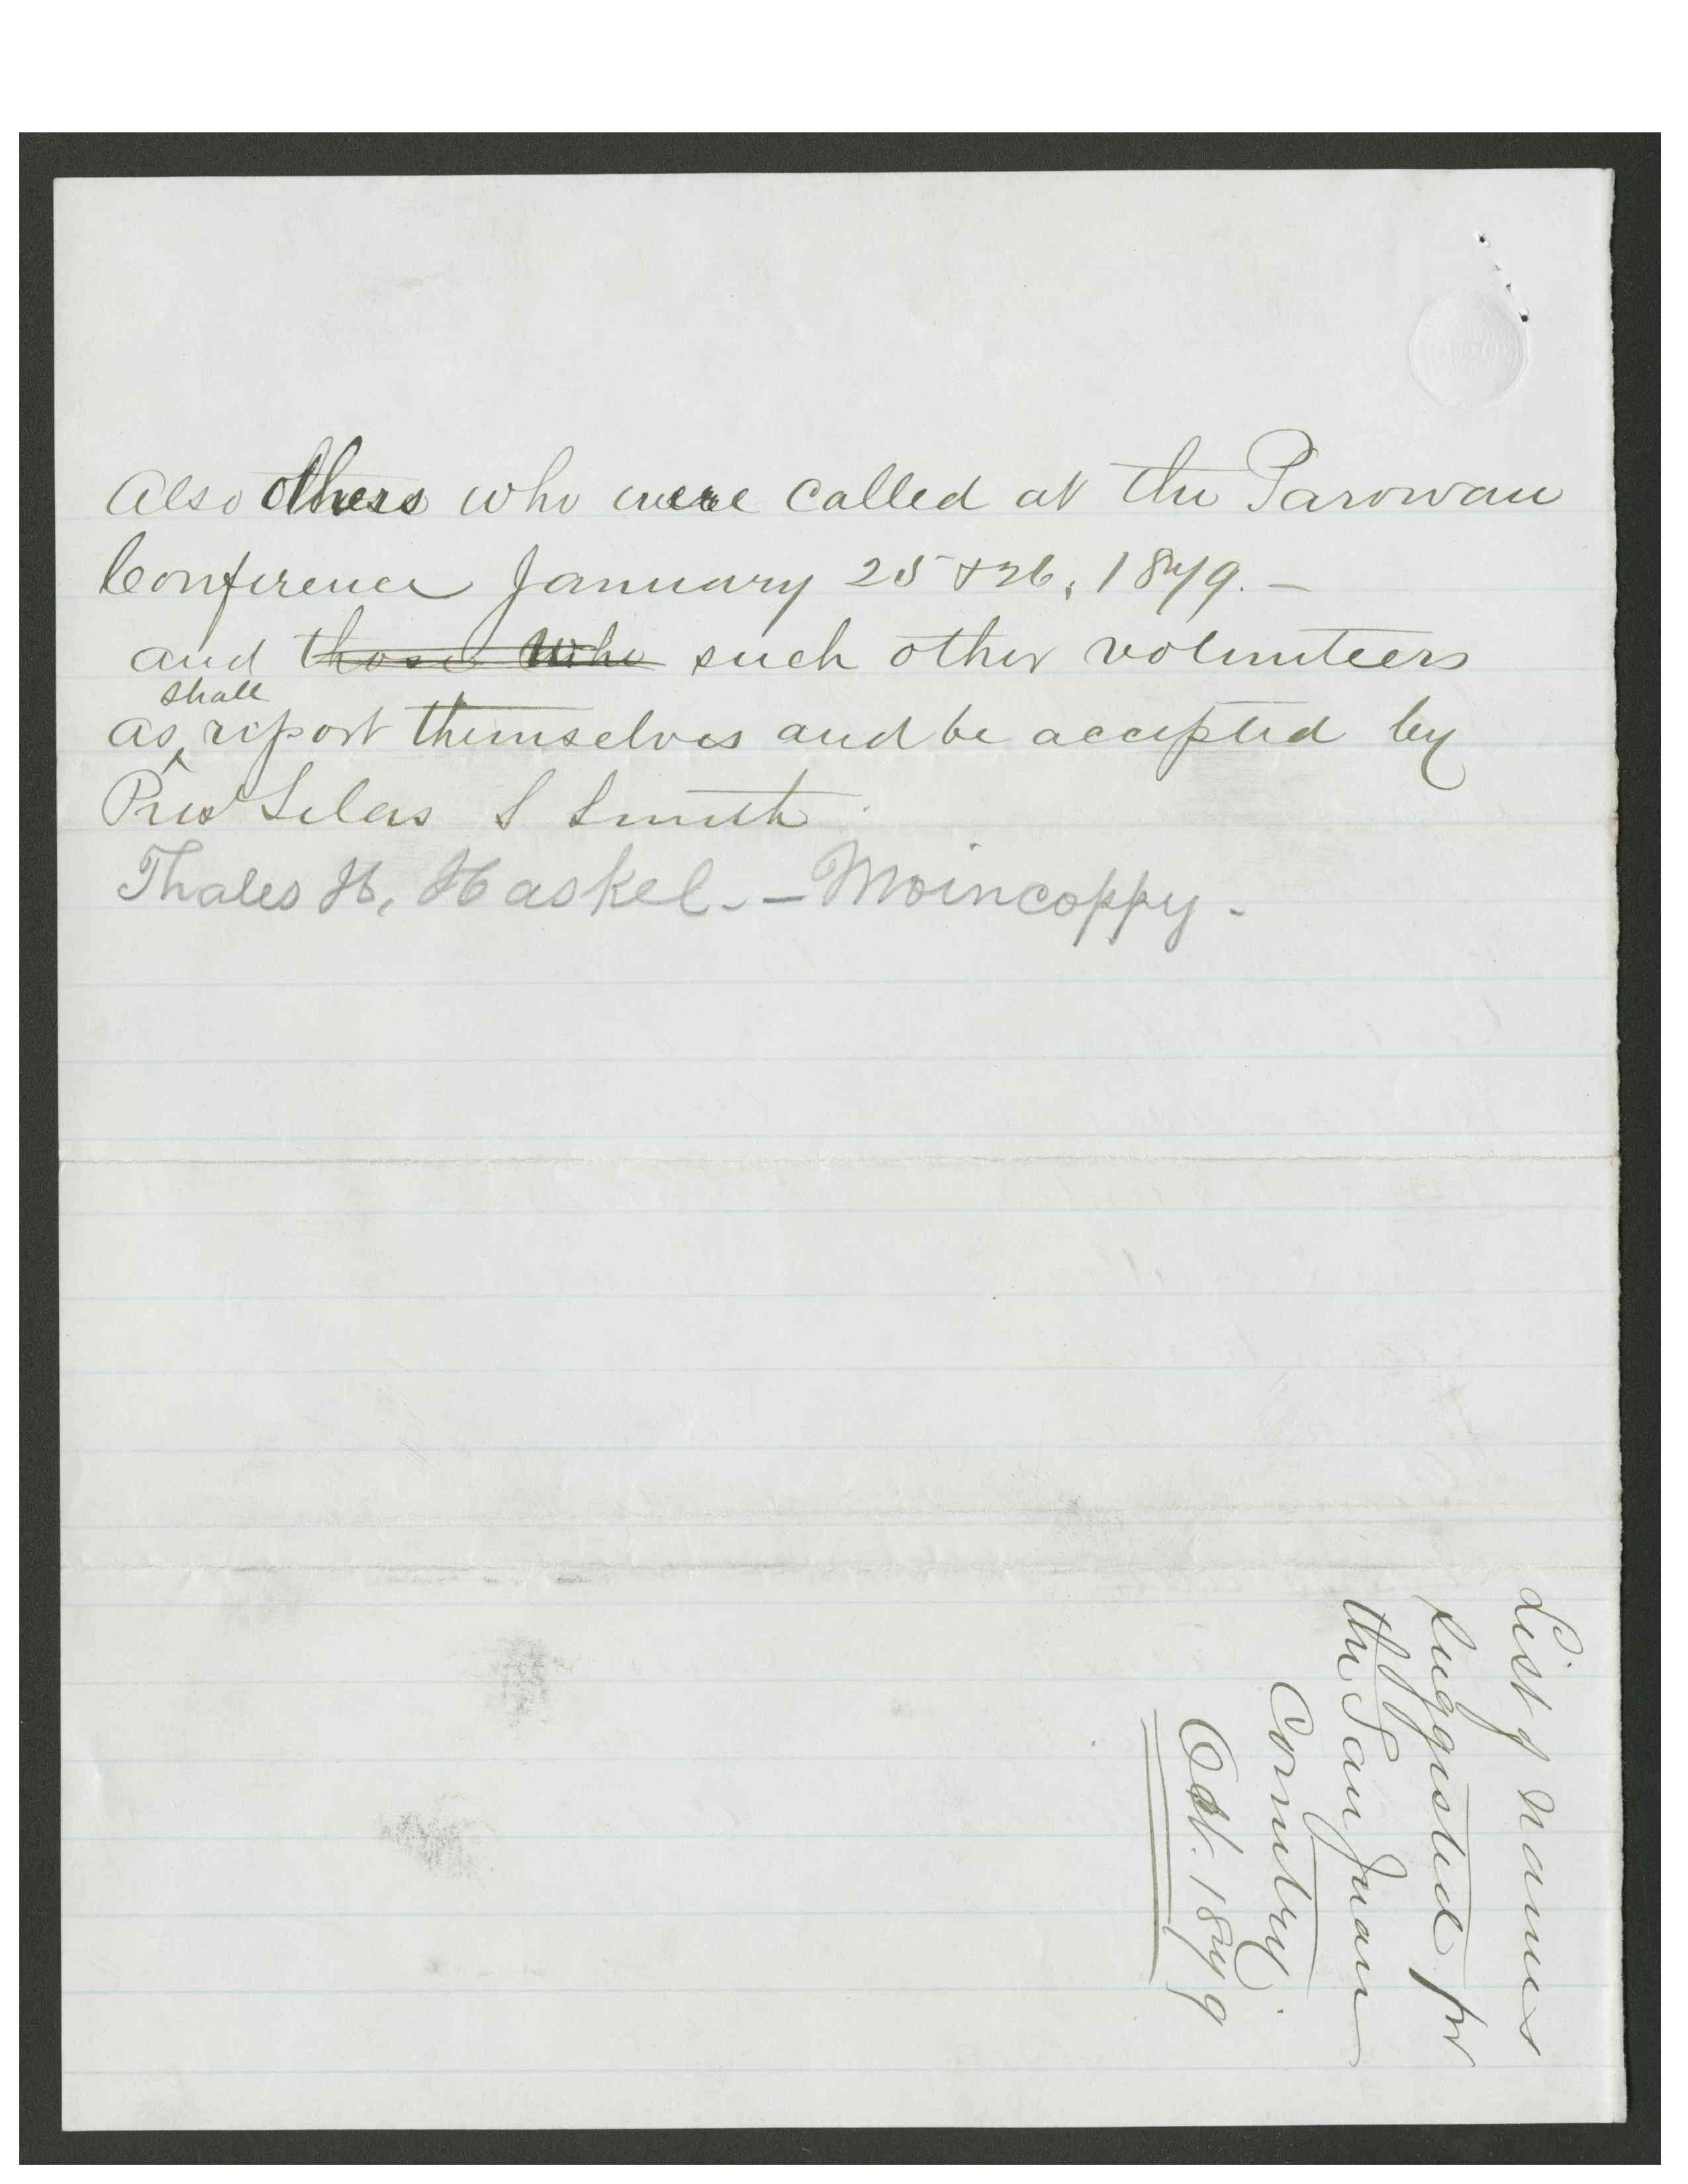 Also others who were called at the Parowan
Conference January 25 & 26, 1879. –
and those who such other volunteers
shall
as ^ report themselves and be accepted by
Pres Silas S Smith
Thales H, Haskel. – Moincoppy –
List of names
suggested for
the San Juan
Country.
Oct. 1879